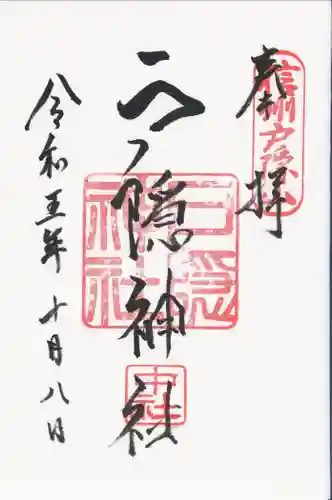 奉拝
信州戸隠山
戸隠神社
戸隠
神社
中社
令和五年 十月八日